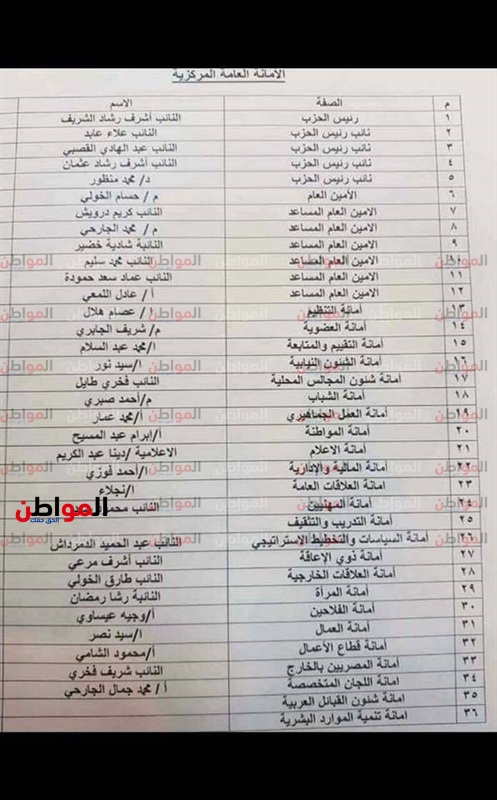 الأمانة العامة المركزية
م الصفة الاسم
١ رئيس الحزب النائب أشرف رشاد الشريف
٢ نائب رئيس الحزب النائب علاء عابد
٣ نائب رئيس الحزب النائب عبد الهادي القصبي
٤ نائب رئيس الحزب النائب أشرف رشاد عثمان
٥ نائب رئيس الحزب د/ محمد منظور
٦ الأمين العام م / حسام الخولي
٧ الامين العام المساعد النائب كريم درويش
٨ الامين العام المساعد م / محمد الجارحي
٩ الامين العام المساعد النائبة شادية خضير
١٠ الامين العام المساعد النائب محمد سليم
١١ الامين العام المساعد النائب عماد سعد حمودة
١٢ الامين العام المساعد أ / عادل اللمعي
١٣ أمانة التنظيم أ / عصام هلال
١٤ أمانة العضوية م/ شريف الجابري
١٥ أمانة التقييم والمتابعة ا/محمد عبد السلام
١٦ أمانة الشئون النيابية ا/سيد نور
١٧ أمانة شئون المجالس المحلية النائب فخري طايل
١٨ أمانة الشباب م/أحمد صبري
١٩ أمانة العمل الجماهيري أ/محمد عمار
٢٠ أمانة المواطنة أ/إبرام عبد المسيح
٢١ أمانة الاعلام الاعلامية /دينا عبد الكريم
٢٢ أمانة المالية والإدارية ا/أحمد فوزي
٢٣ أمانة العلاقات العامة ا/نجلاء
٢٤ أمانة المهنيين النائب محمد
٢٥ أمانة التدريب والتثقيف
٢٦ أمانة السياسات والتخطيط الاستراتيجي النائب عبد الحميد الدمرداش
٢٧ أمانة ذوي الإعاقة النائب أشرف مرعي
٢٨ أمانة العلاقات الخارجية النائب طارق الخولي
٢٩ أمانة المرأة النائبة رشا رمضان
٣٠ أمانة الفلاحين أ/وجيه عيساوي
٣١ أمانة العمال ا/سيد نصر
٣٢ أمانة قطاع الأعمال أ/محمود الشامي
٣٣ أمانة المصريين بالخارج النائب شريف فخري
٣٤ أمانة اللجان المتخصصة أ / محمد جمال الجارحي
٣٥ أمانة شئون القبائل العربية
٣٦ امانة تنمية الموارد البشرية
المواطن